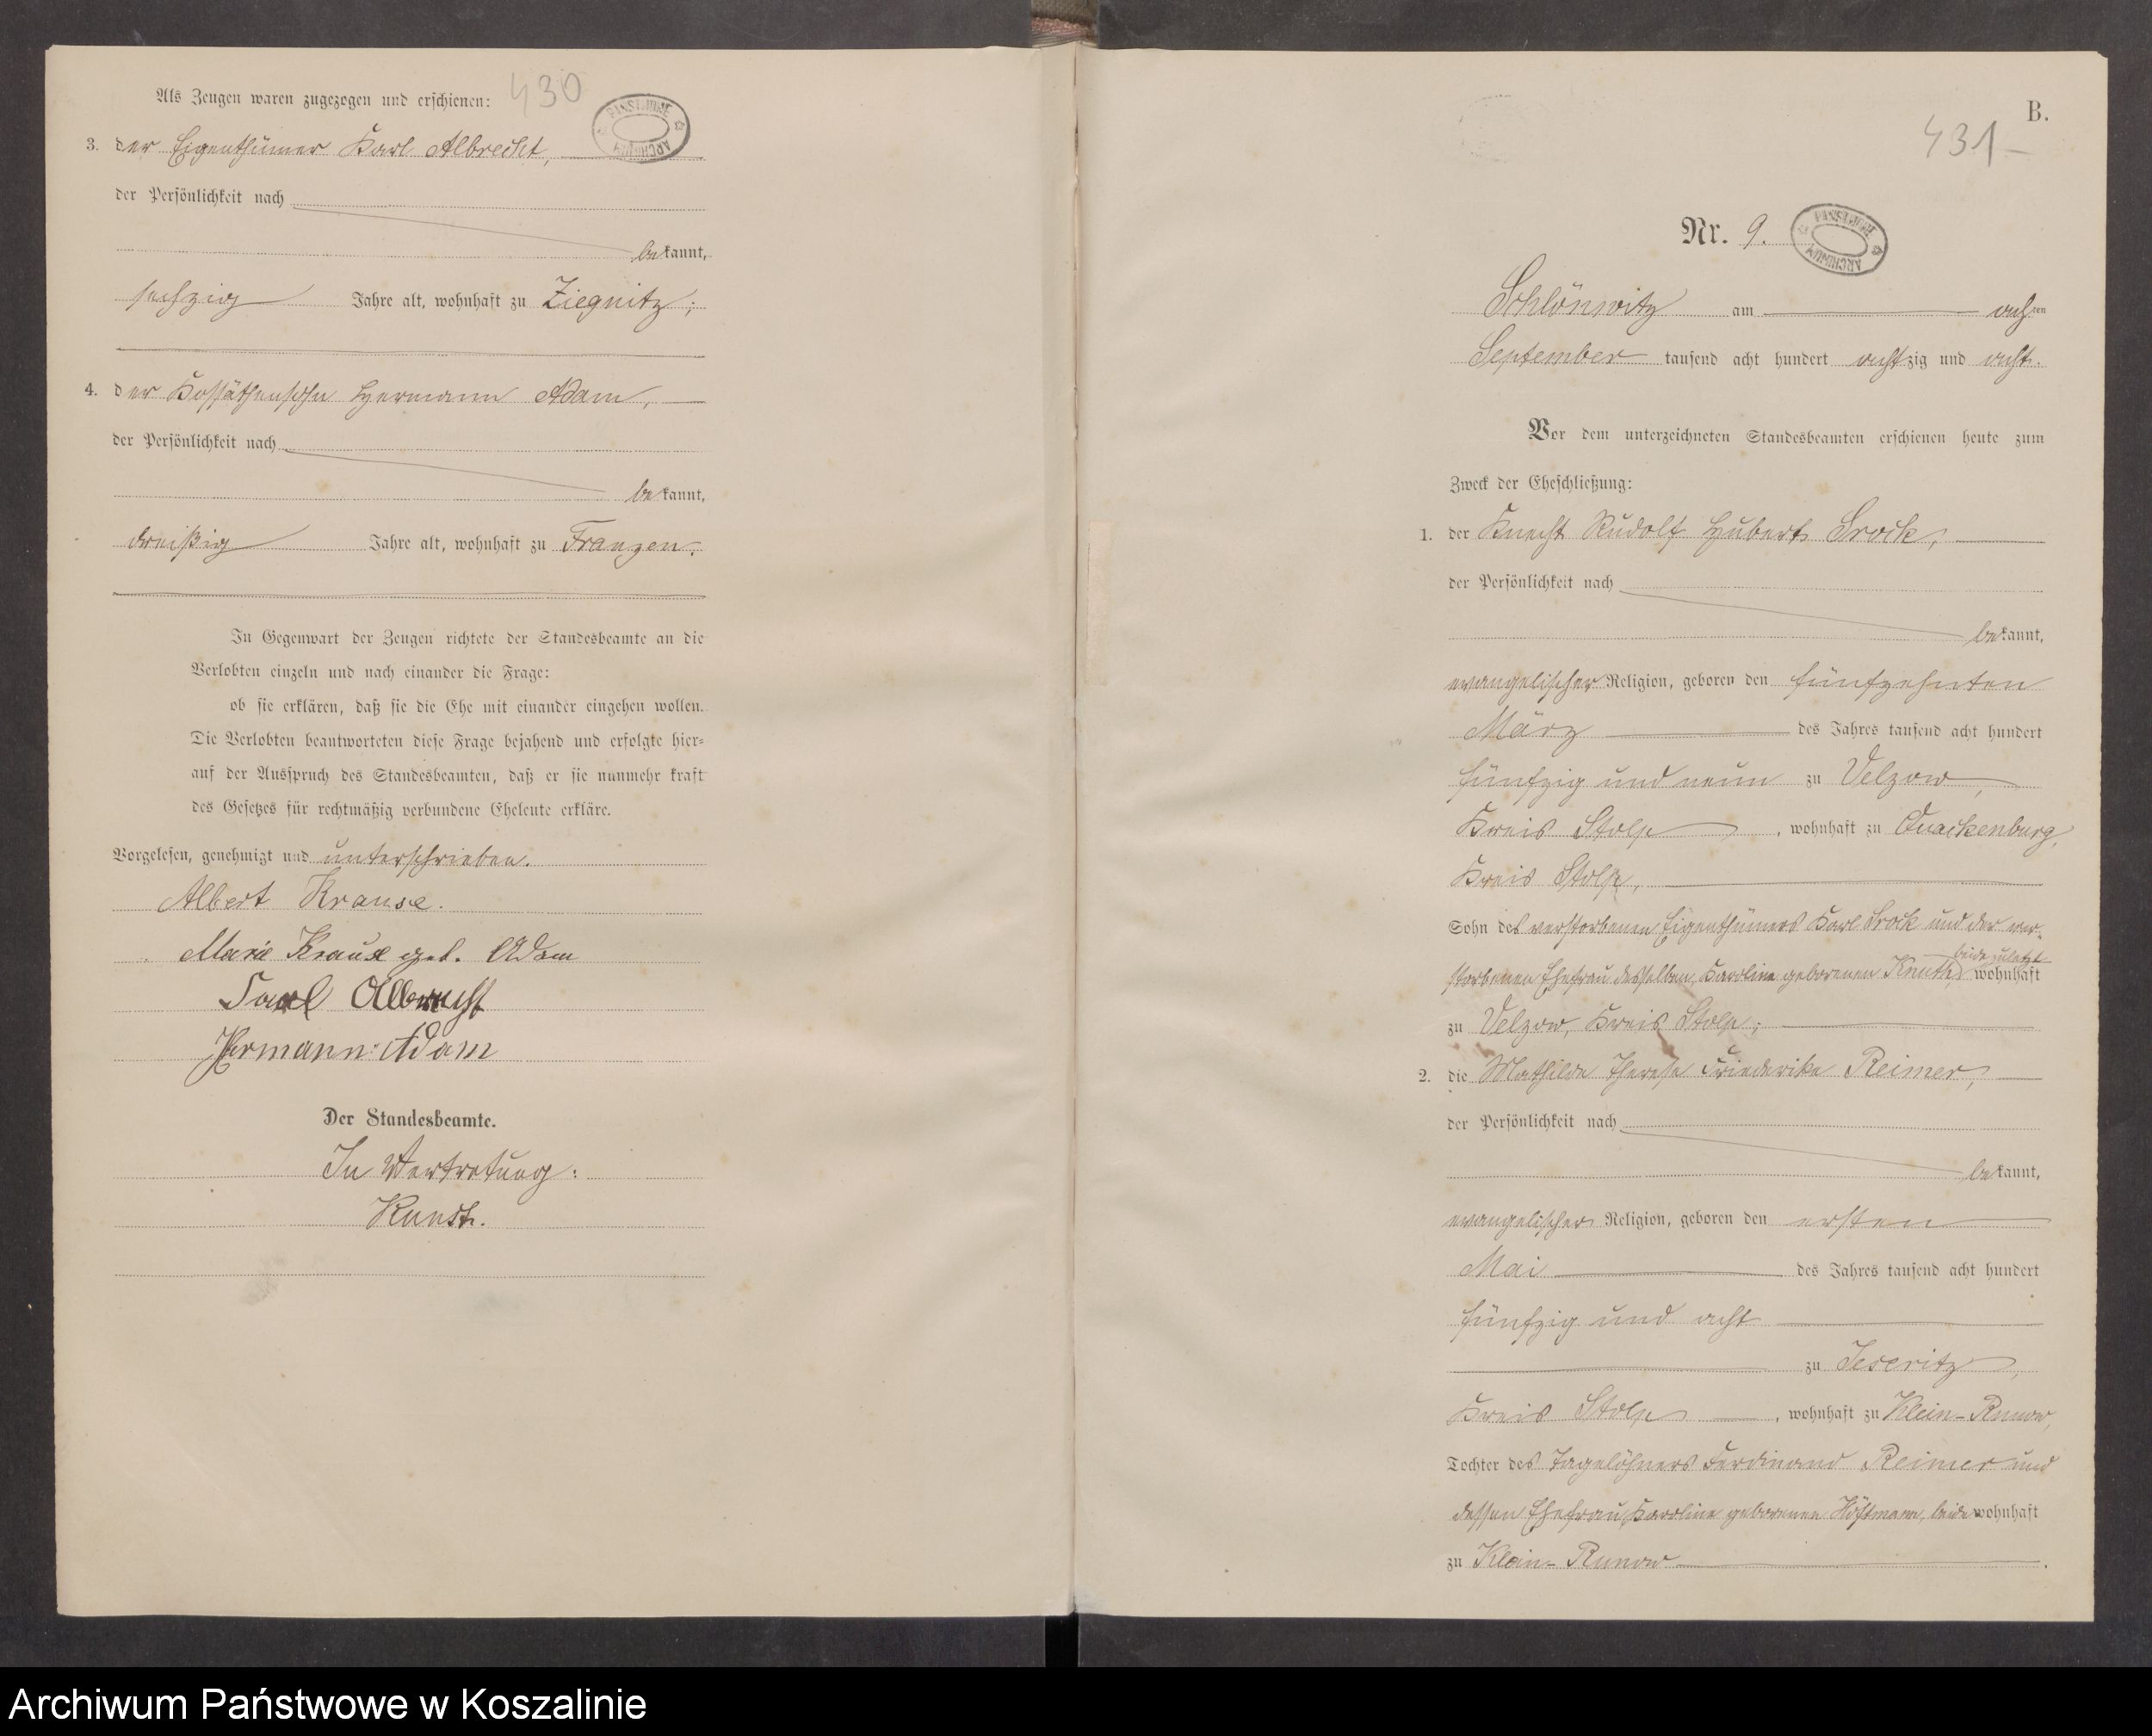 Als Zeugen waren zugezogen und erschienen:
430
3. der Eigenthümer Karl Albrecht,
der Persönlichkeit nach
bekannt,
sechzig Jahre alt, wohnhaft zu Ziegnitz;
4. der Kossäthensohn Hermann Adam,
der Persönlichkeit nach
bekannt,
dreißig Jahre alt, wohnhaft zu Franzen.
In Gegenwart der Zeugen richtete der Standesbeamte an die
Verlobten einzeln und nach einander die Frage:
ob sie erklären, daß sie die Ehe mit einander eingehen wollen.
Die Verlobten beantworteten diese Frage bejahend und erfolgte hier-
auf der Ausspruch des Standesbeamten, daß er sie nunmehr kraft
des Gesetzes für rechtmäßig verbundene Eheleute erkläre.
Vorgelesen, genehmigt und unterschrieben.
Albert Krause.
Marie Krause geb. Adam
Karl Albrecht
Hermann Adam
Der Standesbeamte.
In Vertretung:
B.
431
Nr. 9.
PANSTWOWE ARCHIWUM
Schlönwitz am achten
September tausend acht hundert achtzig und acht.
Vor dem unterzeichneten Standesbeamten erschienen heute zum
Zweck der Eheschließung:
1. der Knecht Rudolf Hubert Srock,
der Persönlichkeit nach
bekannt,
evangelischer Religion, geboren den fünfzehnten
März des Jahres tausend acht hundert
fünfzig und neun zu Velzow,
Kreis Stolp, wohnhaft zu Quackenburg,
Kreis Stolp,
Sohn des verstorbenen Eigenthümers Karl Srock und der ver-
beide zuletzt
storbenen Ehefrau desselben, Karoline geborenen Knuth, wohnhaft
zu Velzow, Kreis Stolp;
2. die Mathilde Therese Friederike Reimer,
der Persönlichkeit nach
bekannt,
evangelischer Religion, geboren den ersten
Mai des Jahres tausend acht hundert
fünfzig und acht
zu Jeseritz,
Kreis Stolp, wohnhaft zu Klein-Runow,
Tochter des Tagelöhners Ferdinand Reimer und
dessen Ehefrau, Karoline geborenen beide wohnhaft
zu Klein-Runow.
Archiwum Państwowe w Koszalinie